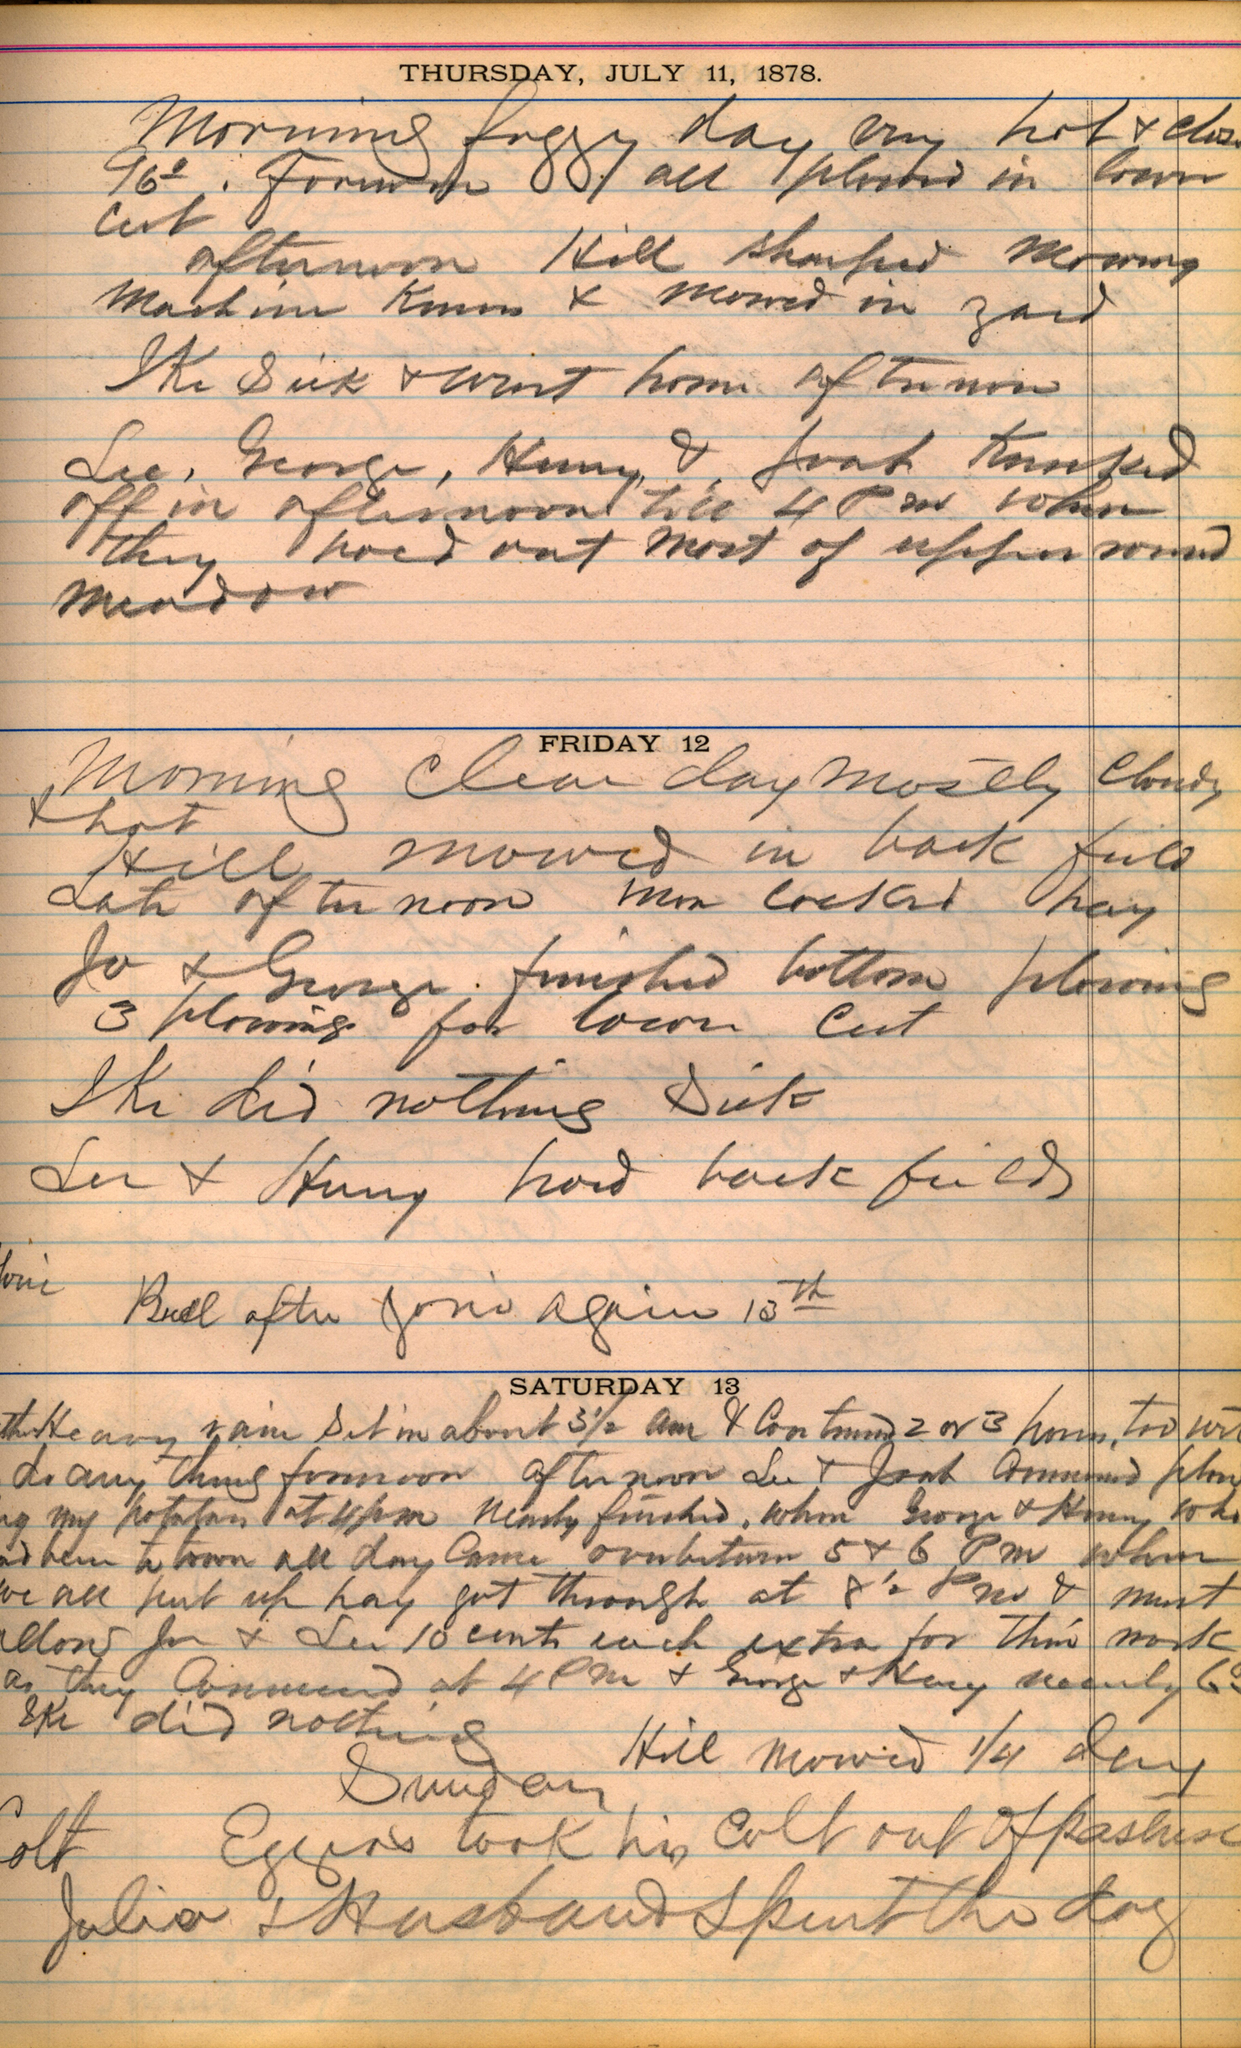 THURSDAY, JULY 11, 1878.
Morning foggy day very hot & close
96°. Forenoon all plowed in town
cut
afternoon Hill sharped Mowing
Machine Knives & mowed in yard
Ike Sick & went home afternoon
Lee, George, Henry, & Joab Knocked
off in afternoon till 4 P m when
they hoed out most of upper round
meadow
FRIDAY 12
Morning Clear day mostly Cloudy
& hot
Hill mowed in back field
Late afternoon Men cocked hay
Jo & George finished bottom plowing
3 plowings for town Cut
Ike did nothing Sick
Lee & Henry hoed back field
Bull after again 13th
SATURDAY 13
Heavy rain Set in about 3 1/2 am & Continued 2 or 3 hours, too wet
do any thing forenoon afternoon Lee & Joab Commenced plow
ng my potatoes at 4 pm Nearly finished, when George & Henry who
ad been to town all day Came over between 5 & 6 P m when
we all put up hay got through at 8 1/2 P m & must
allow Jo & Lee 10 cents each extra for this work
as they Commenced at 4 P m & George & Henry nearly 6
Ike did nothing
Hill mowed 1/4 day
Sunday
Colt took his Colt out of pasture
Julia & Husband Spent the day